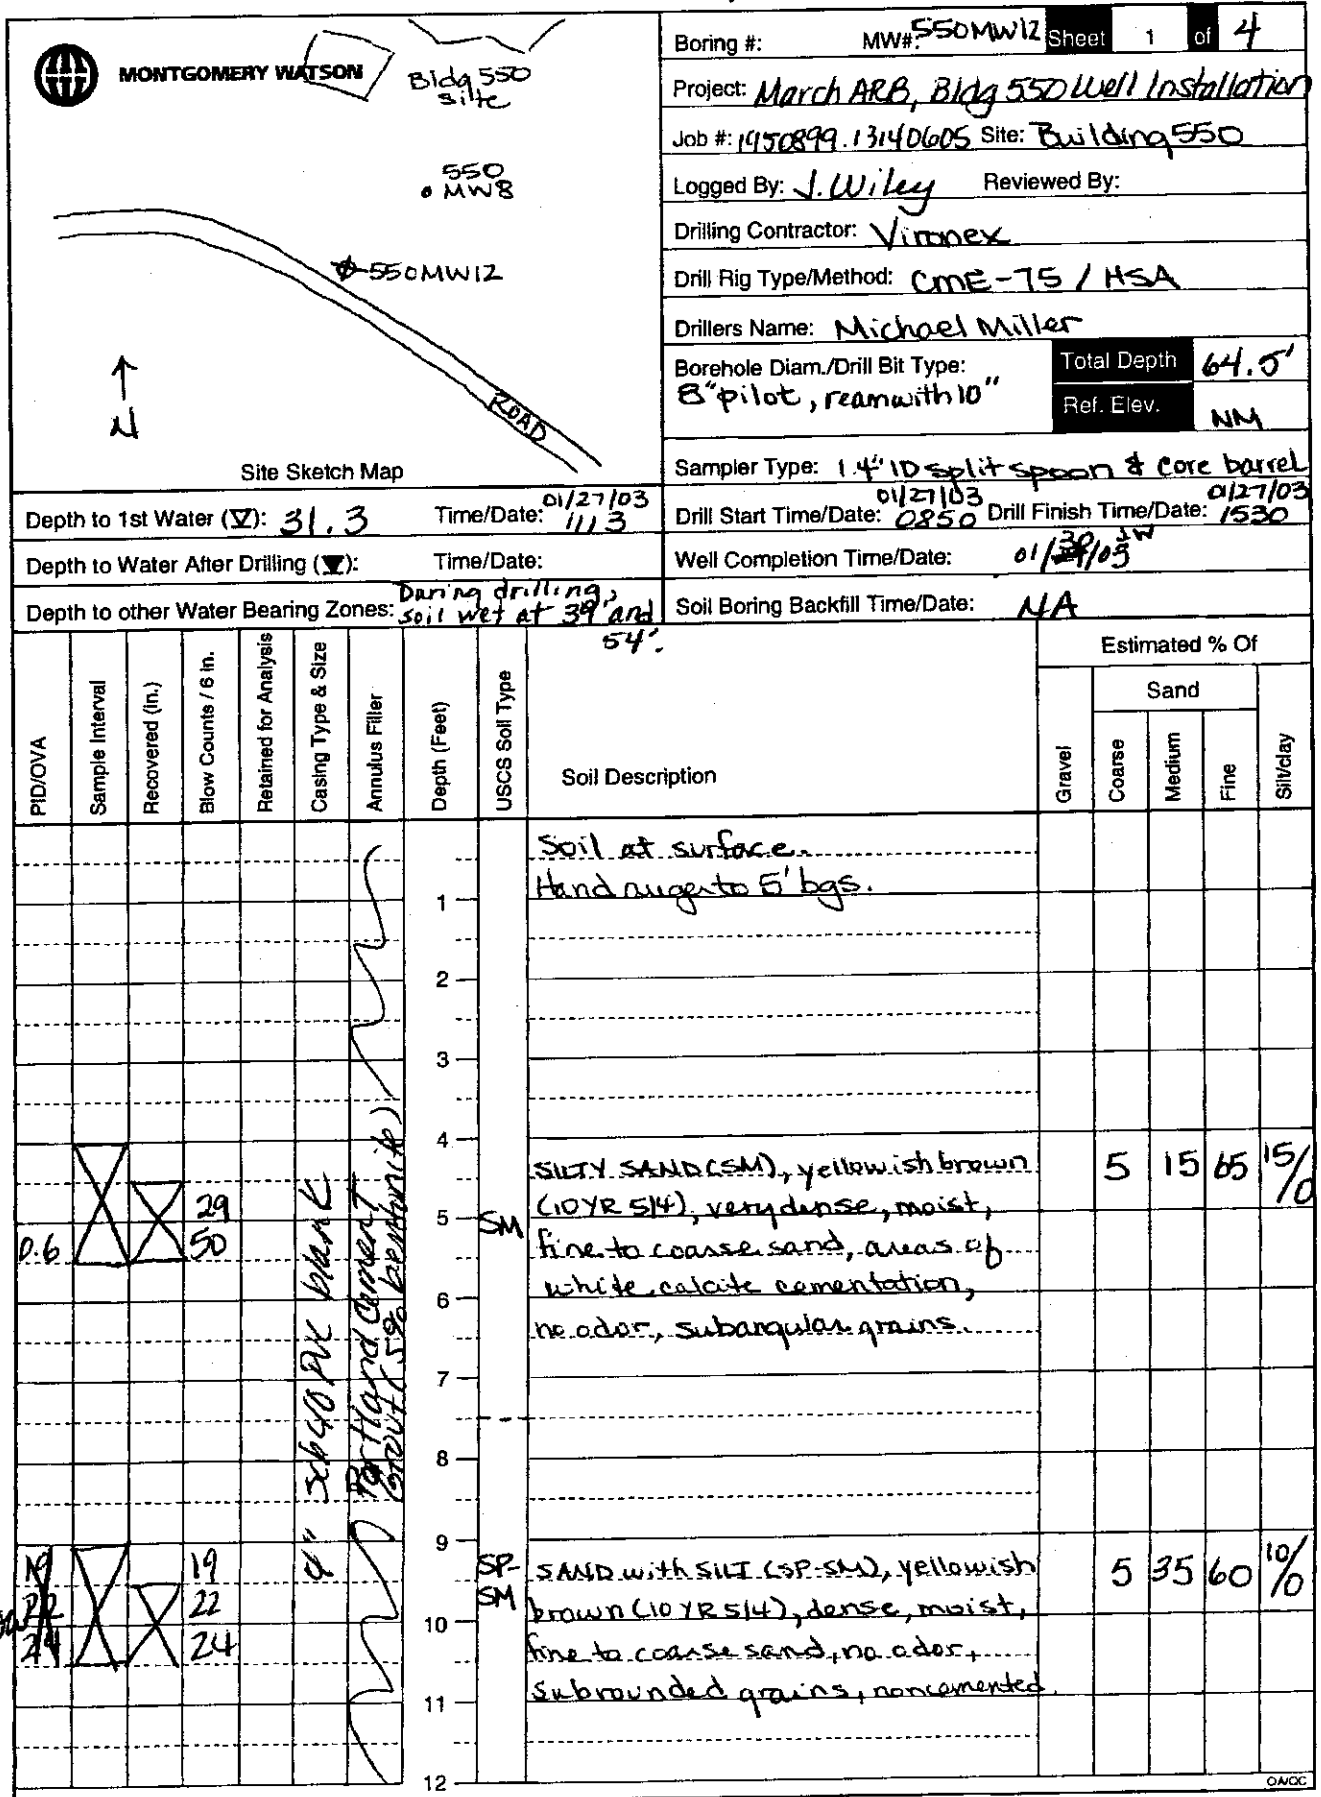 MONTGOMERY WATSON
Bldg 550
site
550
MW8
550MW12
ROAD
N
Site Sketch Map
Boring #: MW#: 550MW12 Sheet 1 of 4
Project: March ARB, Bldg 550 Well Installation
Job #: 1950899.13140605 Site: Building 550
Logged By: J. Wiley Reviewed By:
Drilling Contractor: Vironex
Drill Rig Type/Method: CME-75 / HSA
Drillers Name: Michael Miller
Borehole Diam./Drill Bit Type:
8" pilot, ream with 10"
Total Depth 64.5'
Ref. Elev. NM
Sampler Type: 1.4" ID split spoon & core barrel
Depth to 1st Water (∇): 31.3 Time/Date: 01/27/03 1113
Drill Start Time/Date: 01/27/03 0850 Drill Finish Time/Date: 01/27/03 1530
Depth to Water After Drilling (▼): Time/Date:
Well Completion Time/Date: 01/30/03 JW
Depth to other Water Bearing Zones: During drilling, soil wet at 39' and 54'.
Soil Boring Backfill Time/Date: NA
PID/OVA
Sample Interval
Recovered (in.)
Blow Counts / 6 in.
Retained for Analysis
Casing Type & Size
Annulus Filler
Depth (Feet)
USCS Soil Type
Soil Description
Estimated % Of
Sand
Gravel
Coarse
Medium
Fine
Silt/clay
Soil at surface.
Hand auger to 5' bgs.
1
2
3
4
SILTY SAND (SM), yellowish brown 5 15 65 15/0
29
(10YR 5/4), very dense, moist,
5 SM
0.6 50
fine to coarse sand, areas of
white calcite cementation,
6
no odor, subangular grains.
7
8
4" Sch 40 PVC blank
Portland Cement
Grout (5% bentonite)
9
19 19 SP- SAND with SILT (SP-SM), yellowish 5 35 60 10/0
22 22 SM brown (10 YR 5/4), dense, moist,
10
24 24 fine to coarse sand, no odor,
subrounded grains, noncemented.
11
12
QA/QC